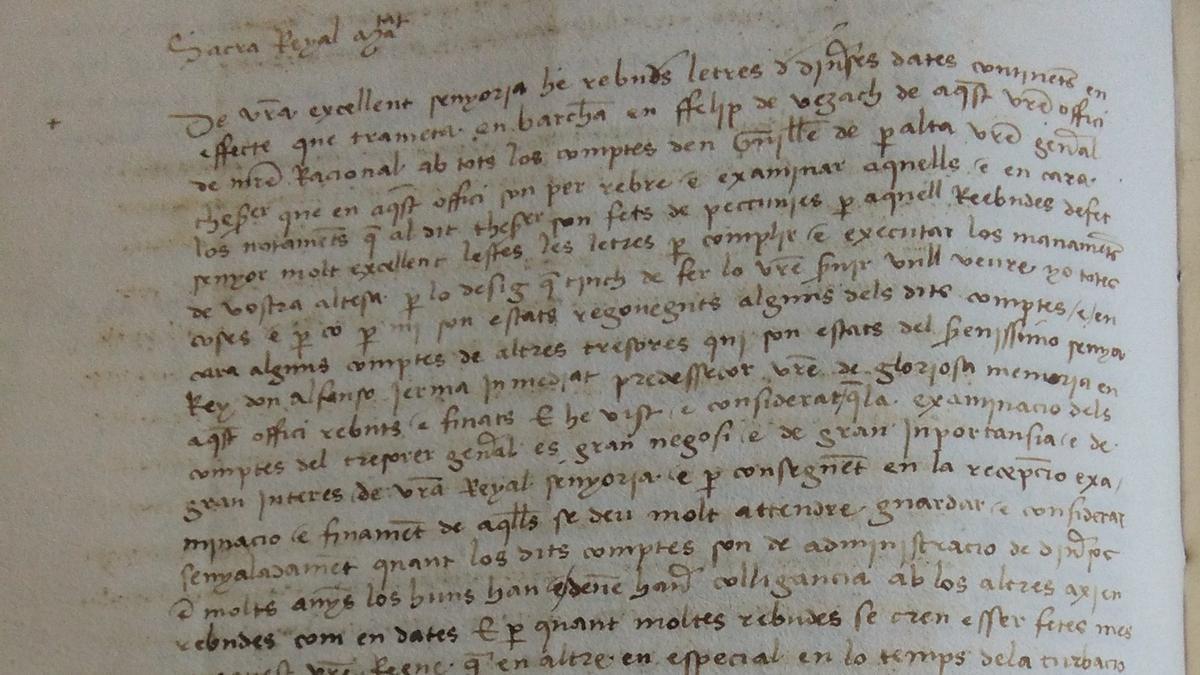 Sacra Reyal Maᵗᵃᵗ
De vr̄a excellent senyoria he rebudes letres d̄ diuses dates continēts en
effecte que trameta en barchā en ffelip de vezach de aq̄st vrē offici
de mrē Racional ab tots los comptes den Guill̄e de p̄alta vrē gen̄al
theser que en aq̄st offici son per rebre e examinar aquells e en cara
los notamēts q̄ al dit theser son fets de peccunies p̄ aquell Reebudes defet
senyor molt excellent lestes les letres p̄ complir e executar los manamēts
de vostra altesa p̄ lo desig q̄ tinch de fer lo vrē s̄uir vull veure yo totes
coses e p̄ co p̄ mi son estats regoneguts alguns dels dits comptes /e/ en
cara alguns comptes de altres tresorers qui son estats del s̄enissimo senyor
Rey don alfonso jerma inmediat predessecor vrē de gloriosa memoria en
aq̄st offici rebuts e finats E he vist e considerat q̄ la examinacio dels
comptes del tresorer gen̄al es gran negosi e de gran inportansia e de
gran interes de vr̄a Reyal senyoria e p̄ conseguēt en la recepcio exa/
minacio e finamēt de aq̄lls se deu molt attendre guardar e considerar
senyaladamēt quant los dits comptes son de administracio de din̄es
d̄ molts anys los huns han e deuē haū colligancia ab los altres axi en
rebudes com en dates E p̄ quant moltes rebudes se cren esser fetes mes
vrē Regne q̄ en altre en especial en lo temps dela turbacio